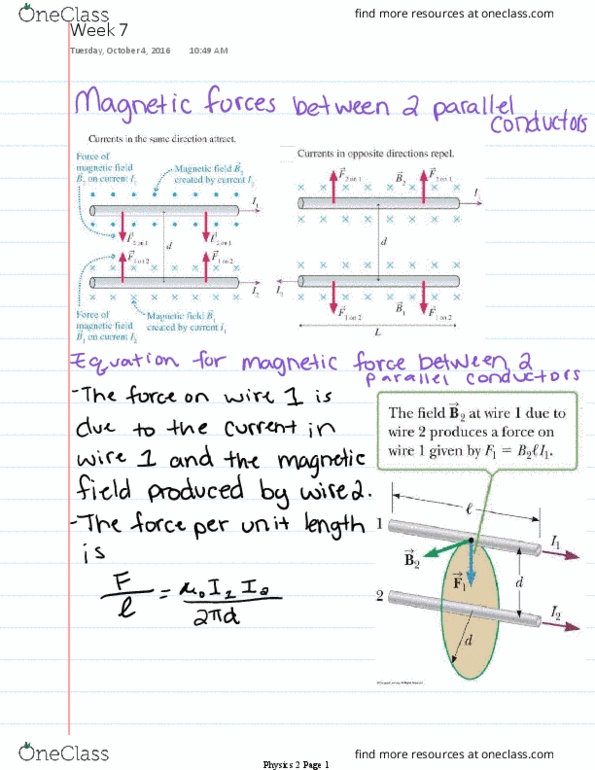 OneClass
find more resources at oneclass.com
Week 7
Tuesday, October 4, 2016 10:49 AM
Magnetic forces between 2 parallel
conductors
Currents in the same direction attract.
Currents in opposite directions repel.
Force of
magnetic field
B⃗₂ on current I₁
Magnetic field B⃗₂
created by current I₂
I₁
F⃗2 on 1
F⃗2 on 1
d
F⃗1 on 2
F⃗1 on 2
I₂
Force of
magnetic field
B⃗₁ on current I₂
Magnetic field B⃗₁
created by current I₁
F⃗2 on 1
B⃗₂
F⃗2 on 1
I₁
d
I₂
F⃗1 on 2
B⃗₁
F⃗1 on 2
L
Equation for magnetic force between 2
parallel conductors
- The force on wire 1 is
due to the current in
wire 1 and the magnetic
field produced by wire 2.
- The force per unit length
is
F/ℓ = μ₀I₂I₂/2πd
The field B⃗₂ at wire 1 due to
wire 2 produces a force on
wire 1 given by F₁ = B₂ℓI₁.
ℓ
1
I₁
B⃗₂
F⃗₁
d
2
I₂
d
OneClass
find more resources at oneclass.com
Physics 2 Page 1